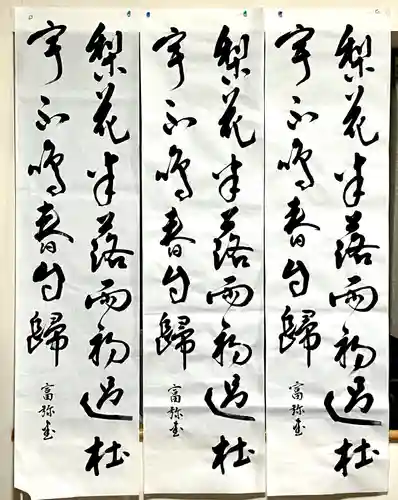 梨花半落雨初過杜
宇不鳴春自歸
富弥書
梨花半落雨初過杜
宇不鳴春自歸
富弥書
梨花半落雨初過杜
宇不鳴春自歸
富弥書